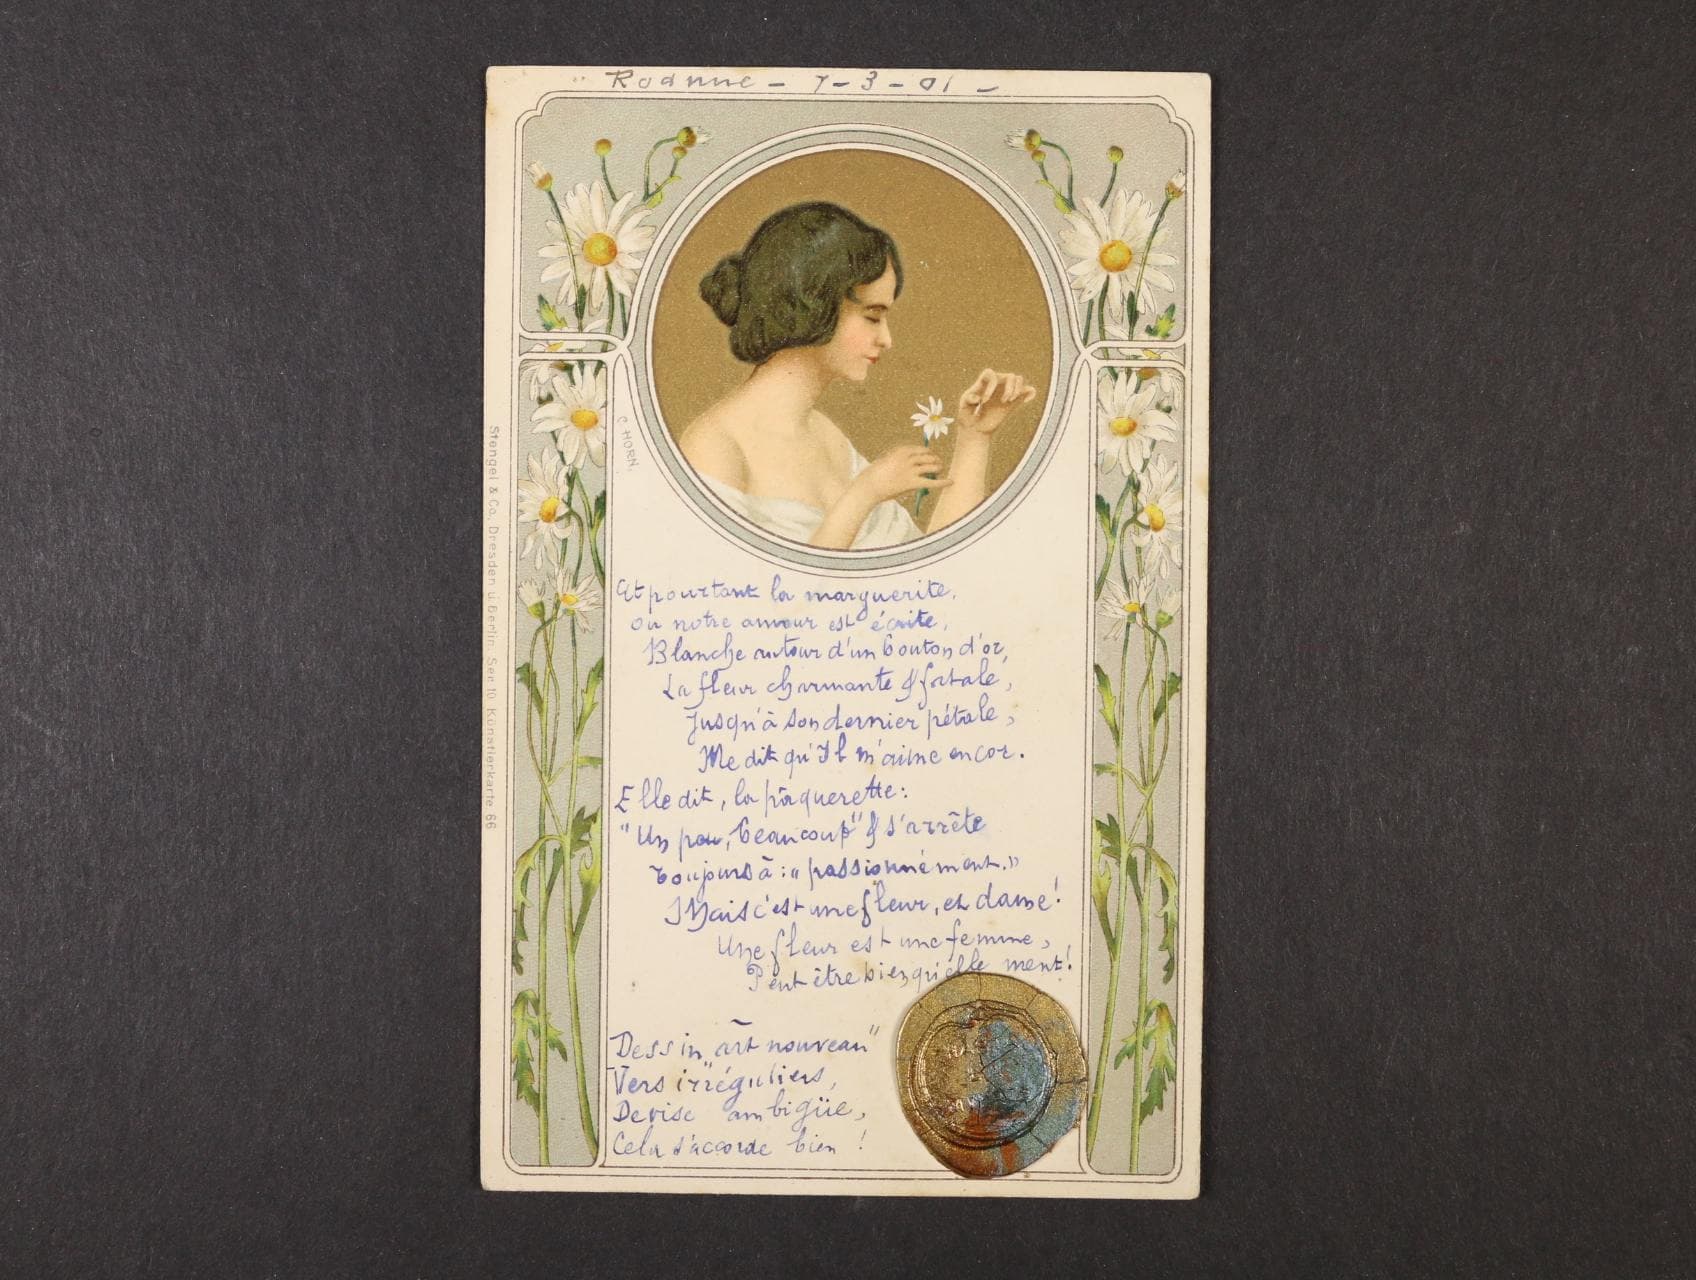 Roanne - 7-3-01 -
C HORN.
Stengel & Co, Dresden u. Berlin. Ser. 10 Künstlerkarte 66
Et pourtant la marguerite,
ou notre amour est écrite,
Blanche autour d'un bouton d'or,
La fleur charmante & fatale,
Jusqu'à son dernier pétale,
Me dit qu'Il m'aime encor.
Elle dit, la pâquerette:
"Un peu, beaucoup" & s'arrête
toujours à: "passionnément."
Mais c'est une fleur, et dame!
Une fleur est une femme,
Peut être bien qu'elle ment!
Dessin "art nouveau"
Vers irréguliers,
Devise ambigüe,
Cela s'accorde bien!